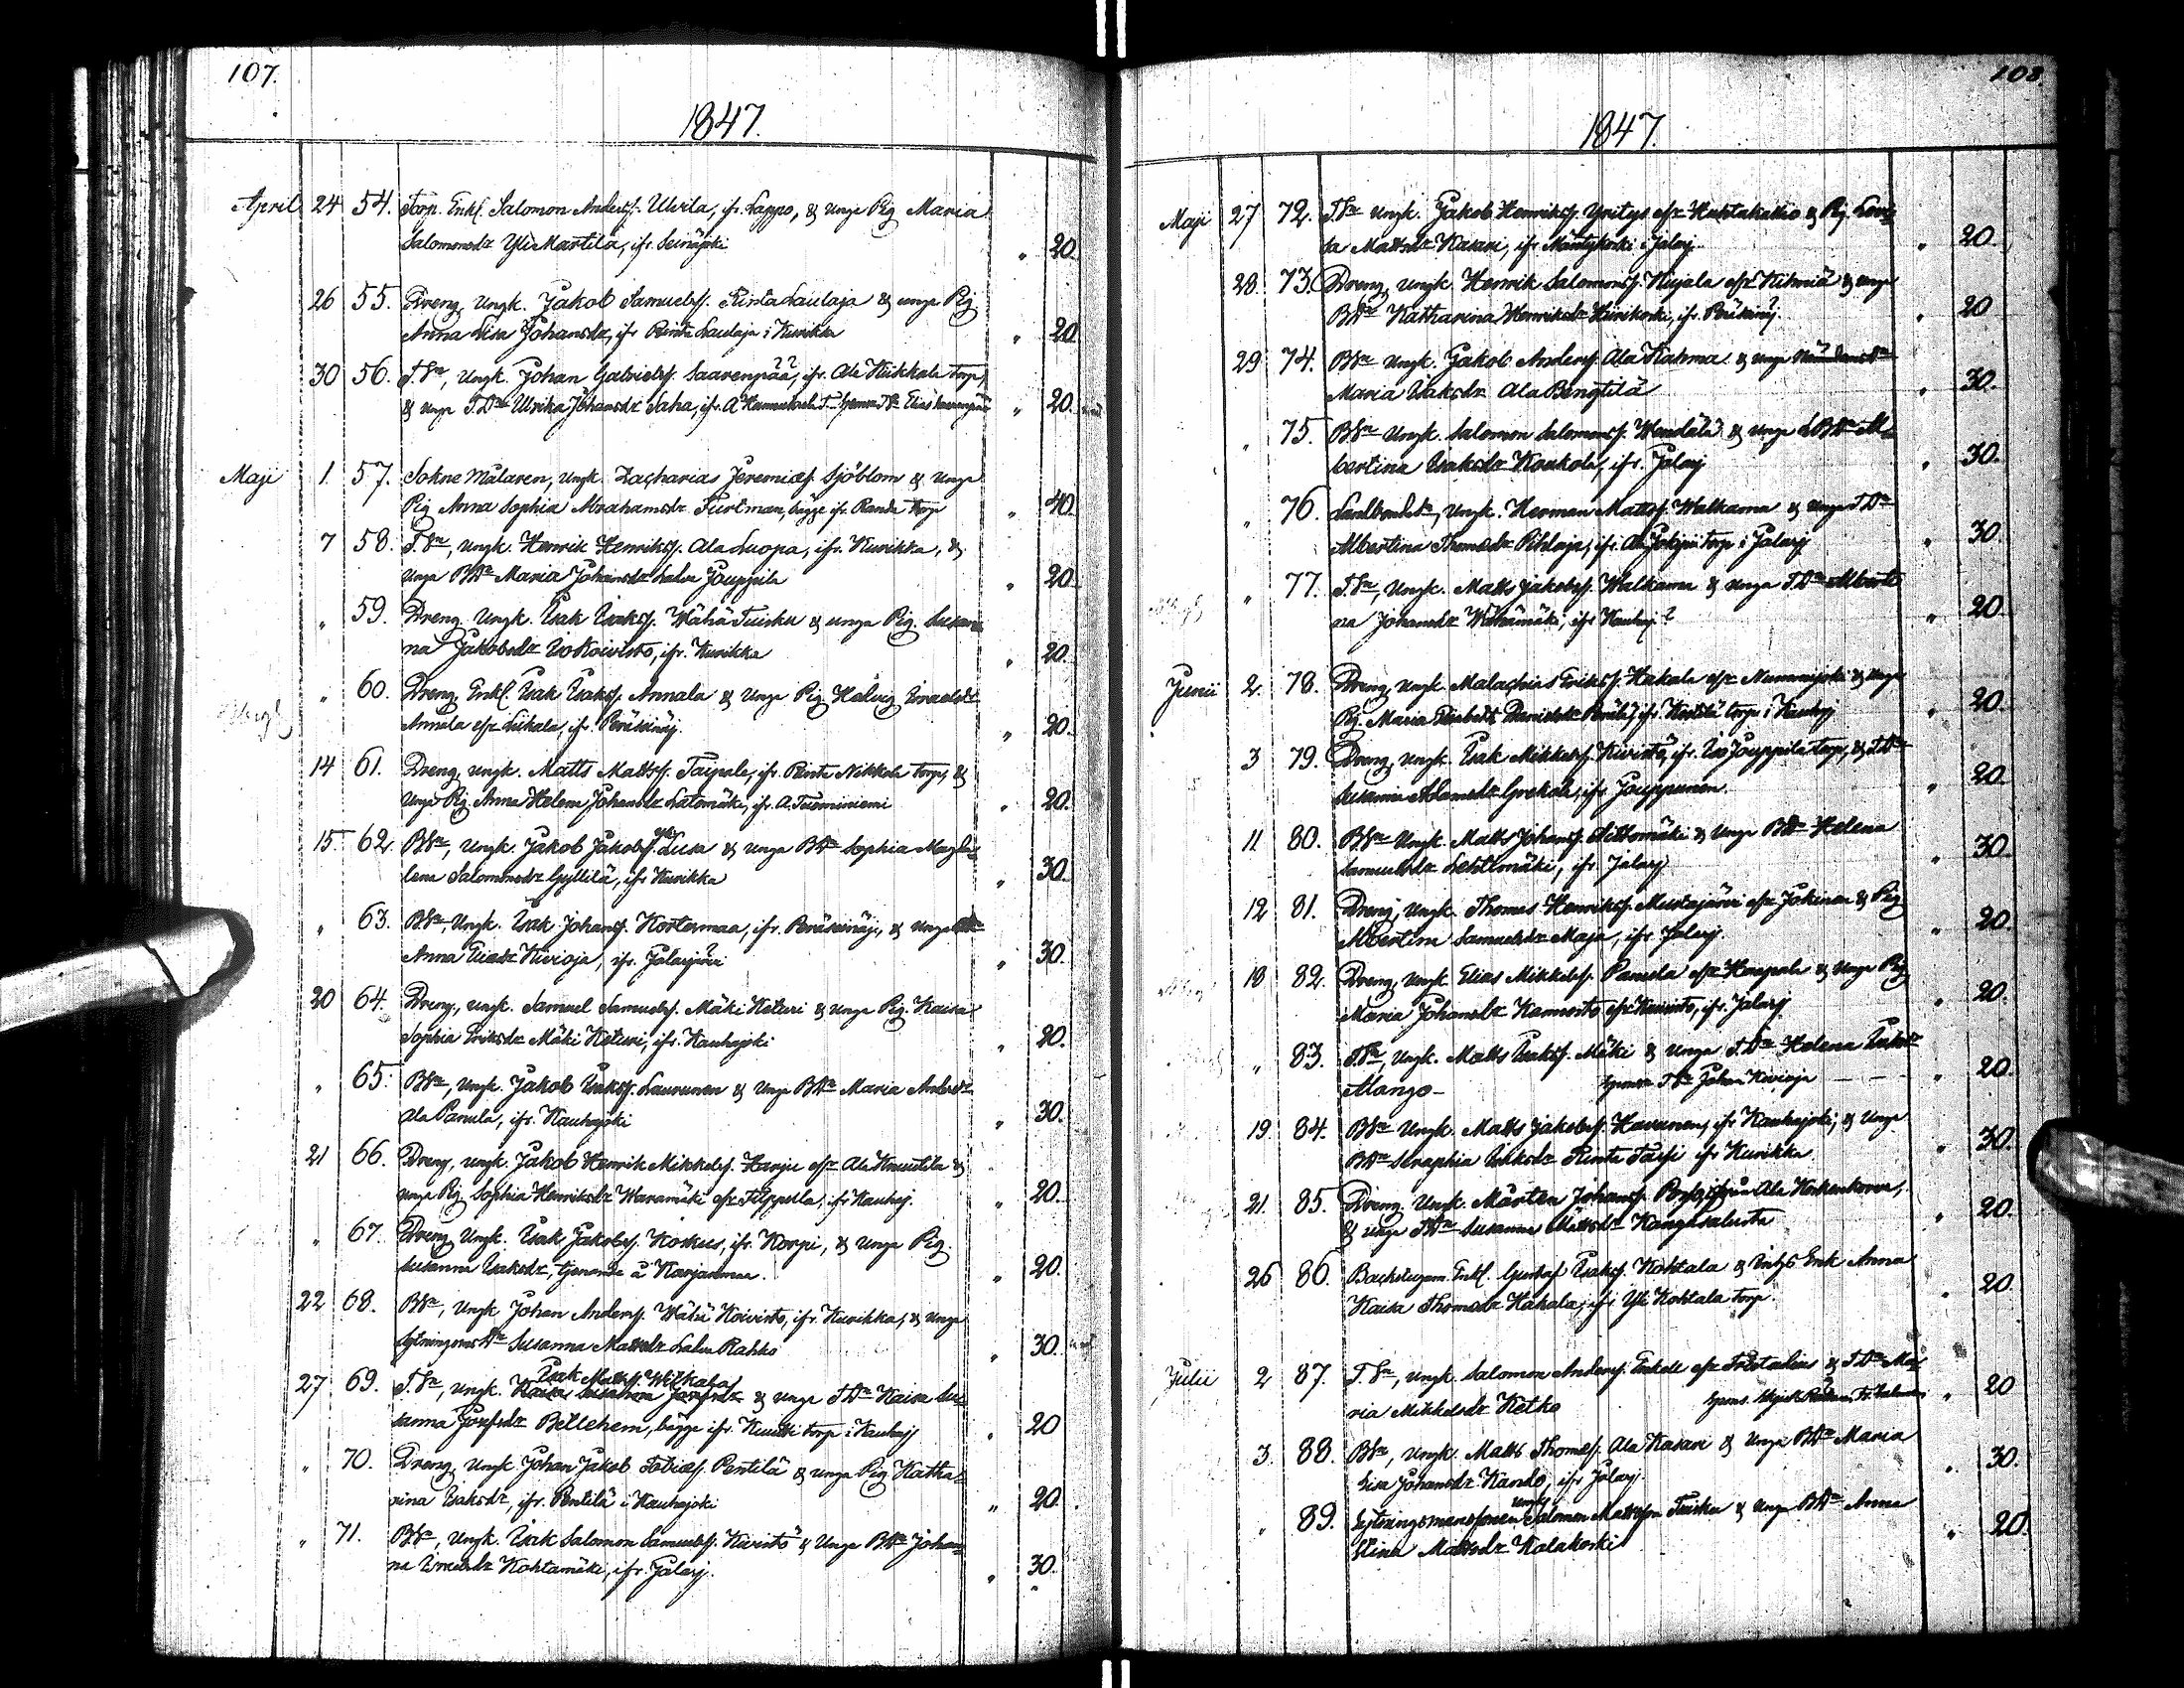 107.
1847.
April 24 54. Torp. Enkl. Salomon Andersf. Ulvila, ifr. Lappo, & unga Pig. Maria
Salomonsdr Yli Marttila, ifr. Seinäjoki „ 20.
26 55. Dreng, Ungk. Jakob Samuelsf. Rinta Laulaja & unga Pig.
Anna Lisa Johansdr, ifr. Rinta Laulaja i Kurikka „ 20
30 56. T.Sn, Ungk. Johan Gabrielsf. Saarenpää, ifr. Ala Kiikkala torp,
& unga T.Dr Ulrika Johansdr Saha, ifr. „ 20.
Maji 1. 57. Sokne Målaren, Ungk. Zacharias Jeremiæf. Sjöblom & unga
Pig. Anna Sophia Abrahamsdr Furtman, bägge ifr. Randa torp „ 40.
7 58. T.Sn, ungk. Henrik Henriksf. Ala Luopa, ifr. Kurikka, &
unga BDr Maria Johansdr Lalu Jouppila „ 20.
„ 59. Dreng, Ungk. Isak Isaksf. Wähä Tuisku & unga Pig. Susan
na Jakobsdr Iso Koivisto, ifr. Kurikka „ 20.
„ 60. Dreng, Enkl. Isak Isaksf. Annala & unga Pig. Hedvig Israelsdr
Annala efr Liikala, ifr. Peräseinäj. „ 20.
14 61. Dreng, ungk. Matts Mattsf. Taipale, ifr. Rinta Nikkola torp, &
unga Pig. Anna Helena Johansdr Latomäki, ifr. A. Tuominiemi „ 20.
15 62. BSn, ungk. Jakob Jakobsf. Yli Lusa & unga BDr Sophia Magda
lena Salomonsdr Gyllilä, ifr Kurikka „ 30.
„ 63. BSn, Ungk. Isak Johansf. Kortesmaa, ifr. Peräseinäj., & unga
Anna Eliasdr Kivioja, ifr. Jalasjärvi „ 30.
20 64. Dreng, ungk. Samuel Samuelsf. Mäki Keturi & unga Pig. Kaisa
Sophia Eriksdr Mäki Keturi, ifr. Kauhajoki „ 20.
„ 65. BSn, ungk. Jakob Isaksf. Laurunen & unga BDr Maria Andersdr
Ala Panula, ifr. Kauhajoki „ 30.
21 66. Dreng, ungk. Jakob Henrik Mikkelsf. Harju efr Ala Knuutila &
unga Pig. Sophia Henriksdr Waramäki efr Filppula, ifr Kauhaj. „ 20.
„ 67. Dreng, Ungk. Isak Jakobsf. Koskus, ifr. Korpi, & unga Pig.
Susanna Isaksdr, tjenande å Karjanmaa. „ 20.
22 68. BSn, Ungk Johan Andersf. Wähä Koivisto, ifr. Kurikka, & unga
Sytningsms Dr Susanna Mattsdr Lalu Rahko „ 30.
27 69. T.Sn, ungk. Isak Mattsf. Wilkala Kaisa Susanna Josefsdr & unga T.Dr Kaisa Su
sanna Josefsdr Betlehem, bägge ifr. Knuutti torp i Kauhaj „ 20
„ 70. Dreng, Ungk. Johan Jakob Tobiæf. Pentilä & unga Pig. Katha
rina Isaksdr, ifr. Pentilä i Kauhajoki „ 20.
„ 71. BSn, Ungk. Isak Salomon Samuelsf. Kivistö & Unga BDr Johan
na Israelsdr Kohtamäki, ifr. Jalasj. „ 30.
108.
1847.
Maji 27 72. T.Sn ungk. Jakob Henriksf. Yritys efr Huhtakallio & Pig. Lovi
sa Mattsdr Kasari, ifr. Mäntykoski i Jalasj. „ 20.
28. 73. Dreng, ungk. Henrik Salomonsf. Kujala efr Kihniä & unga
BDr Katharina Henriksdr Hirvikoski, ifr. Peräseinäj. „ 20
29 74. BSn Ungk. Jakob Andersf. Ala Kahma & unga
Maria Isaksdr Ala Bengtilä „ 30.
„ 75. BSn Ungk. Salomon Salomonsf. Wendelä & unga LBDr Al
bertina Isaksdr Koukola, ifr. Jalasj „ 30.
„ 76. Landbondesn, Ungk. Herman Mattsf. Walkama & unga T.Dr
Albertina Thomasdr Pihlaja, ifr. Ala Jokipii torp i Jalasj „ 30
„ 77. T.Sn, Ungk. Matts Jakobsf. Walkama & unga T.Dr Alberti
na Johansdr Wähämäki, ifr Kauhaj? „ 20.
Junii 2. 78. Dreng, ungk. Malachias Eriksf. Hakala efr Nummijoki & unga
Pig. Maria Elisabeth Danielsdr Perälä, ifr. Kestilä torp i Kauhaj „ 20.
3 79. Dreng, ungk. Isak Mikkelsf. Kivistö, ifr. Iso Jouppila torp, & T.Dr
Susanna Adamsdr Grekola, ifr. Jouppunen „ 20.
11 80. BSn Ungk. Matts Johansf. Lillomäki & unga BDr Helena
Samuelsdr Lehtomäki, ifr. Jalasj „ 30.
12 81. Dreng, ungk. Thomas Henriksf. Mustajärvi efr Jokinen & Pig.
Albertina Samuelsdr Maja, ifr. Jalasj. „ 20.
18 82. Dreng, ungk. Elias Mikkelsf. Panula efr Haapala & unga Pig
Maria Johansdr Kannosto efr Kuusisto, ifr. Jalasj „ 20.
„ 83. T.Sn, ungk. Matts Isaksf. Mäki & unga T.Dr Helena Isaksdr
Mango - Spons. T.Sn Johan Kivioja „ 20.
19 84. BSn Ungk. Matts Jakobsf. Havunen, ifr Kauhajoki, & unga
BDr Seraphia Isaksdr Rinta Paupi ifr Kurikka „ 30.
21. 85. Dreng, Ungk. Mårten Johansf. Ala Koskenkorva,
& unga T.Dr Susanna Mattsdr Kangasluoma „ 20.
26 86. Backstugum. Enkl. Gustaf Isaksf. Kohtala & Inhys Enk. Anna
Kaisa Thomasdr Hakala, ifr Yli Kohtala torp. „ 20
Julii 2 87. T.Sn, ungk. Salomon Andersf. Enkell efr Tristadius & T.Dr Ma
ria Mikkelsdr Ketko „ 20
3. 88. BSn, Ungk. Matts Thomæf. Ala Kasari & Unga BDr Maria
Lisa Johansdr Kando, ifr Jalasj. „ 30.
„ 89. Sytningsmanssonen Ungk. Salomon Mattsson Tuisku & unga BDr Anna
Stina Mattsdr Kalakoski „ 20.